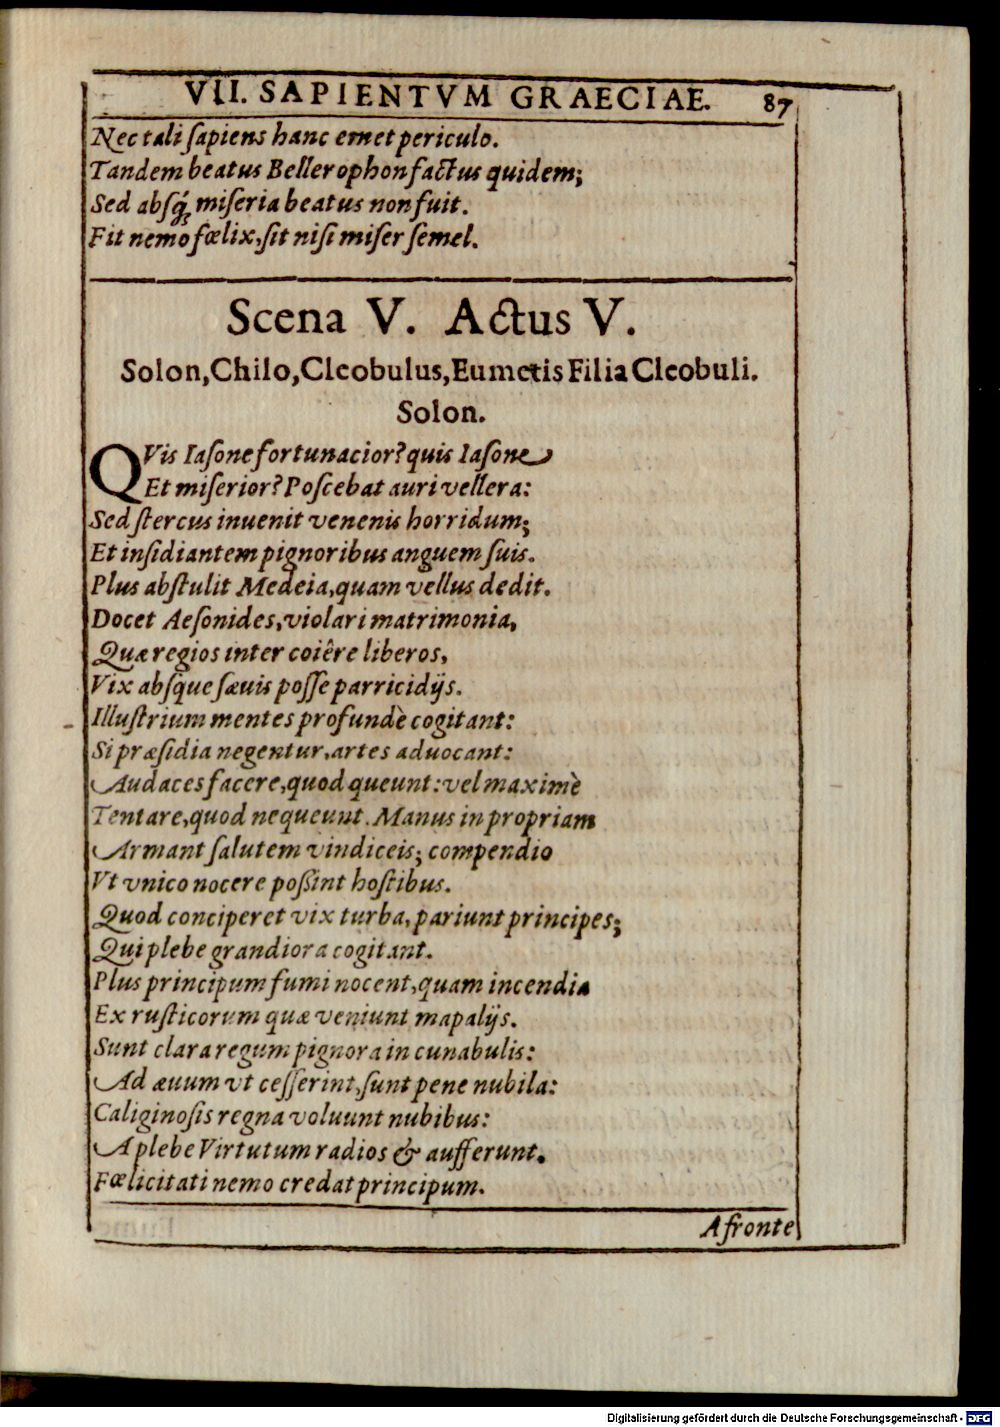 VII. SAPIENTVM GRAECIAE. 87
Nec tali ſapiens hanc emet periculo.
Tandem beatus Bellerophon factus quidem;
Sed abſq́; miſeria beatus non fuit.
Fit nemo fœlix, ſit niſi miſer ſemel.
Scena V. Actus V.
Solon, Chilo, Cleobulus, Eumetis Filia Cleobuli.
Solon.
QVis Iaſone fortunacior? quis Iaſone
Et miſerior? Poſcebat auri vellera:
Sed ſtercus inuenit venenis horridum;
Et inſidiantem pignoribus anguem ſuis.
Plus abſtulit Medeia, quam vellus dedit.
Docet Aeſonides, violari matrimonia,
Quæ regios inter coiêre liberos,
Vix abſque ſæuis poſſe parricidijs.
Illuſtrium mentes profundè cogitant:
Si præſidia negentur, artes aduocant:
Audaces facere, quod queunt: vel maximè
Tentare, quod nequeunt. Manus in propriam
Armant ſalutem vindiceis; compendio
Vt vnico nocere poſſint hoſtibus.
Quod conciperet vix turba, pariunt principes;
Qui plebe grandiora cogitant.
Plus principum fumi nocent, quam incendia
Ex ruſticorum quæ veniunt mapalijs.
Sunt clara regum pignora in cunabulis:
Ad æuum vt ceſſerint, ſunt pene nubila:
Caliginoſis regna voluunt nubibus:
A plebe Virtutum radios & aufferunt.
Fœlicitati nemo credat principum.
A fronte
Digitalisierung gefördert durch die Deutsche Forschungsgemeinschaft - DFG